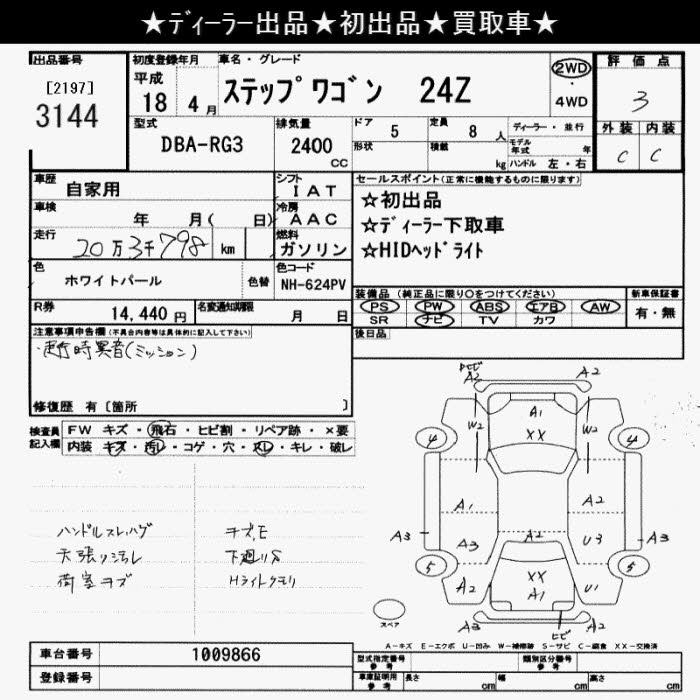 ★ディーラー出品★初出品★買取車★
出品番号
[2197]
3144
初度登録年月
平成
18 4月
車名・グレード
ステップワゴン 24Z
2WD
・
4WD
評価点
3
外装 内装
C C
型式
DBA-RG3
排気量
2400
CC
ドア
5
定員
8 人
形状
積載
kg
ディーラー・並行
モデル年式 年
ハンドル 左・右
車歴
自家用
シフト
IAT
車検
年 月( 日)
冷房
AAC
走行
20万3千798 km
燃料
ガソリン
色
ホワイトパール
色替
色コード
NH-624PV
R券
14,440円
名変通知期限
月 日
セールスポイント(正常に機能するものに限ります)
☆初出品
☆ディーラー下取車
☆HIDヘッドライト
装備品 (純正品に限り○をつけてください)
PS PW ABS エアB AW
SR ナビ TV カワ
新車保証書
有・無
後日品
注意事項申告欄(不具合内容等は具体的に記入して下さい)
・走行時異音(ミッション)
修復歴 有 [箇所 ]
検査員記入欄
FW キズ・飛石・ヒビ割・リペア跡・×要
内装 キズ・汚レ・コゲ・穴・スレ・キレ・破レ
ハンドルスレ,ハゲ
天張リ汚レ
荷室キズ
キズ,E
下廻リS
Hライトクモリ
ヒビ
A2
A2
A1
W2
W2
XX
4
4
A1
A2
A3
A3
A2
U3
A3
5
5
XX
A2
A1
U1
A3
A2
ヒビ
スペア
A-キズ E-エクボ U-凹み W-補修跡 S-サビ C-腐食 XX-交換済
車台番号
1009866
登録番号
型式指定番号
参考
類別区分番号
参考
車庫証明用
参考
長さ cm
幅 cm
高さ cm